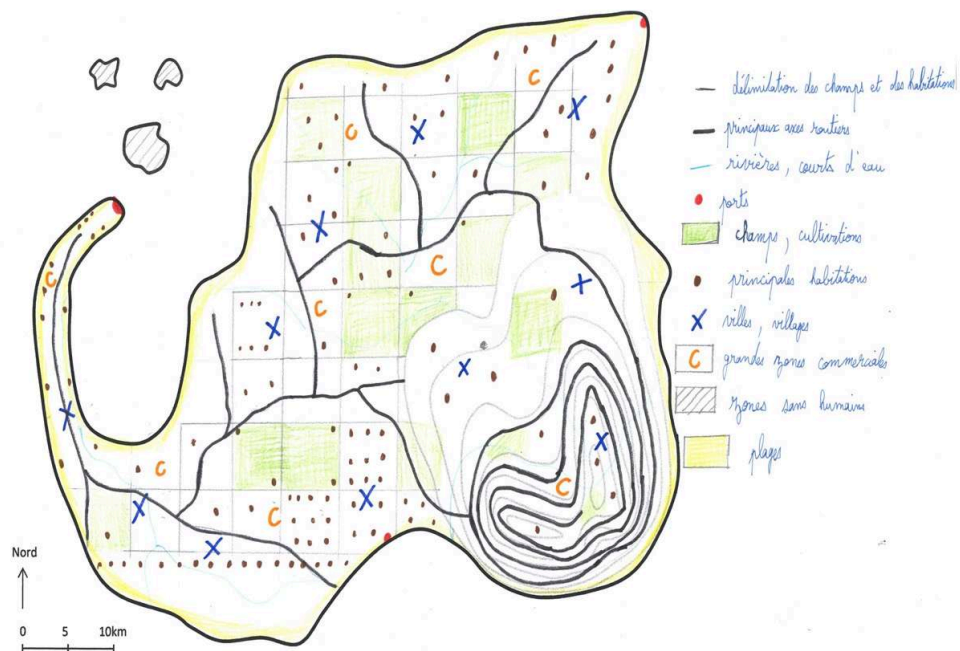 délimitation des champs et des habitations
principaux axes routiers
rivières, courts d'eau
ports
champs, cultivations
principales habitations
villes, villages
C grandes zones commerciales
zones sans humains
plages
C
C
C
C
C
C
C
C
Nord
0 5 10km